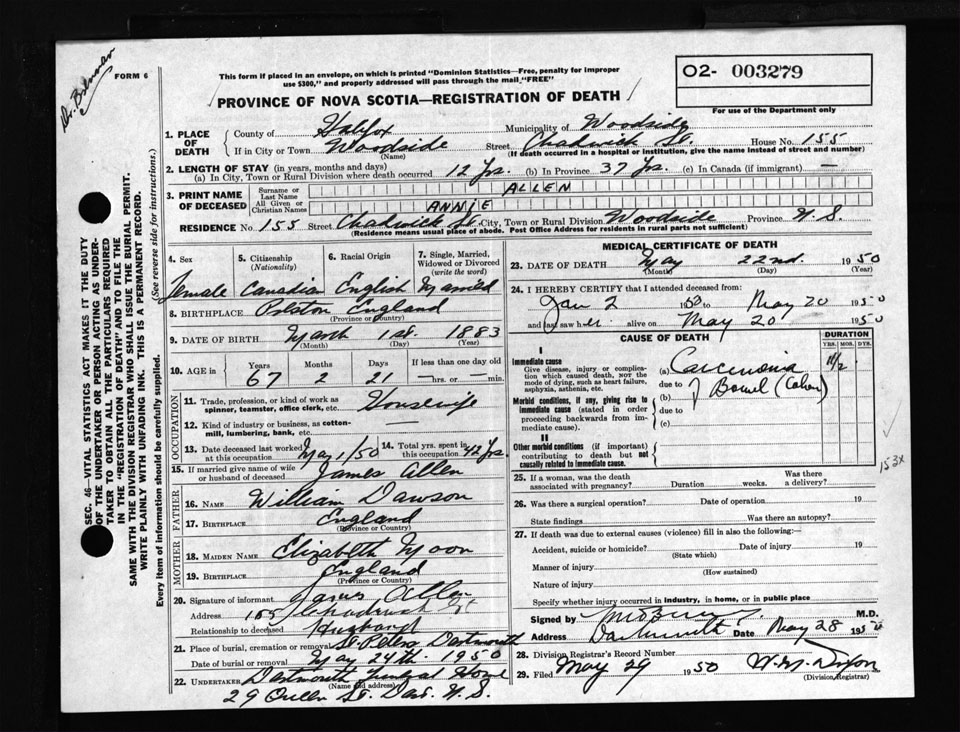 Dr. 
FORM 6
This form if placed in an envelope, on which is printed "Dominion Statistics—Free, penalty for improper
use $300," and properly addressed will pass through the mail "FREE"
02- 003279
For use of the Department only
PROVINCE OF NOVA SCOTIA—REGISTRATION OF DEATH
1. PLACE OF DEATH County of Halifax Municipality of Woodside
If in City or Town Woodside Street Chadwick St. House No. 155
(Name) (If death occurred in a hospital or institution, give the name instead of street and number)
2. LENGTH OF STAY (in years, months and days)
(a) In City, Town or Rural Division where death occurred 12 Yrs. (b) In Province 37 Yrs. (c) In Canada (if immigrant) —
3. PRINT NAME OF DECEASED Surname or Last Name ALLEN
All Given or Christian Names ANNIE
RESIDENCE No. 155 Street Chadwick St. City, Town or Rural Division Woodside Province N.S.
(Residence means usual place of abode. Post Office Address for residents in rural parts not sufficient)
4. Sex 5. Citizenship (Nationality) 6. Racial Origin 7. Single, Married, Widowed or Divorced (write the word)
Female Canadian English Married
8. BIRTHPLACE England
(Province or Country)
9. DATE OF BIRTH March 1st. 1883
(Month) (Day) (Year)
10. AGE in Years Months Days If less than one day old
67 2 21 — hrs. or — min.
OCCUPATION
11. Trade, profession, or kind of work as spinner, teamster, office clerk, etc. Housewife
12. Kind of industry or business, as cotton-mill, lumbering, bank, etc. —
13. Date deceased last worked at this occupation May 1/50 14. Total yrs. spent in this occupation 42 Yrs.
15. If married give name of wife or husband of deceased James Allen
FATHER
16. NAME William Dawson
17. BIRTHPLACE England
(Province or Country)
MOTHER
18. MAIDEN NAME Elizabeth Moon
19. BIRTHPLACE England
(Province or Country)
20. Signature of informant James Allen
Address 155 Chadwick St
Relationship to deceased Husband
21. Place of burial, cremation or removal St. Peters Dartmouth
Date of burial or removal May 24th. 1950
22. UNDERTAKER Dartmouth Funeral Home
(Name and address)
29 Queen St. Dart. N.S.
MEDICAL CERTIFICATE OF DEATH
23. DATE OF DEATH May 22nd. 1950
(Month) (Day) (Year)
24. I HEREBY CERTIFY that I attended deceased from:
Jan 2 1950 to May 20 1950
and last saw her alive on May 20 1950
CAUSE OF DEATH DURATION
YRS. MOS. DYS.
I
Immediate cause
Give disease, injury or complication which caused death, not the mode of dying, such as heart failure, asphyxia, asthenia, etc.
(a) Carcinoma 1 1/2
due to of Bowel (Colon)
Morbid conditions, if any, giving rise to immediate cause (stated in order proceeding backwards from immediate cause).
(b)
due to
(c)
II
Other morbid conditions (if important) contributing to death but not causally related to immediate cause.
153x
25. If a woman, was the death associated with pregnancy? Duration weeks. Was there a delivery?
26. Was there a surgical operation? Date of operation 19
State findings Was there an autopsy?
27. If death was due to external causes (violence) fill in also the following:—
Accident, suicide or homicide? Date of injury 19
(State which)
Manner of injury
(How sustained)
Nature of injury
Specify whether injury occurred in industry, in home, or in public place
Signed by M.D.
Address Dartmouth Date May 28 1950
28. Division Registrar's Record Number
29. Filed May 29 1950 W. M. Dixon
(Division Registrar)
SEC. 46—VITAL STATISTICS ACT MAKES IT THE DUTY
OF THE UNDERTAKER OR PERSON ACTING AS UNDER-
TAKER TO OBTAIN ALL THE PARTICULARS REQUIRED
IN THE "REGISTRATION OF DEATH" AND TO FILE THE
SAME WITH THE DIVISION REGISTRAR WHO SHALL ISSUE THE BURIAL PERMIT.
WRITE PLAINLY WITH UNFADING INK. THIS IS A PERMANENT RECORD.
Every item of information should be carefully supplied. (See reverse side for instructions.)